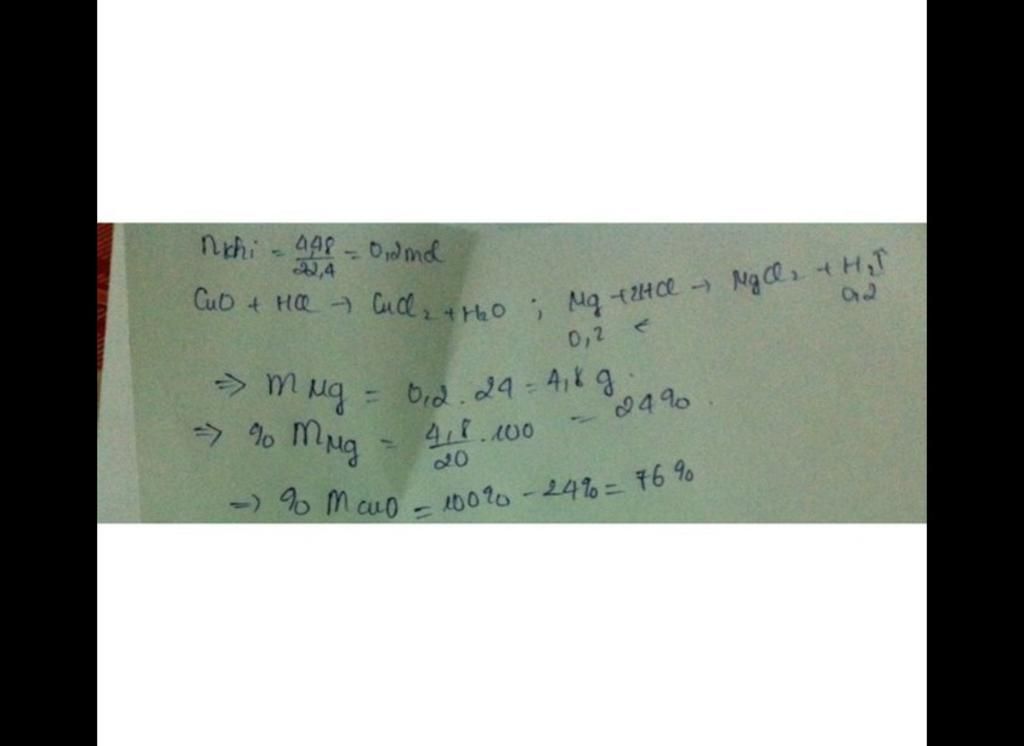 nkhi = 4,48/22,4 = 0,2mol
CuO + HCl → CuCl₂ + H₂O ; Mg + 2HCl → MgCl₂ + H₂↑
0,2 ← 0,2
⇒ mMg = 0,2 . 24 = 4,8 g.
⇒ % mMg = 4,8/20 . 100 = 24%.
⇒ % mCuO = 100% - 24% = 76%